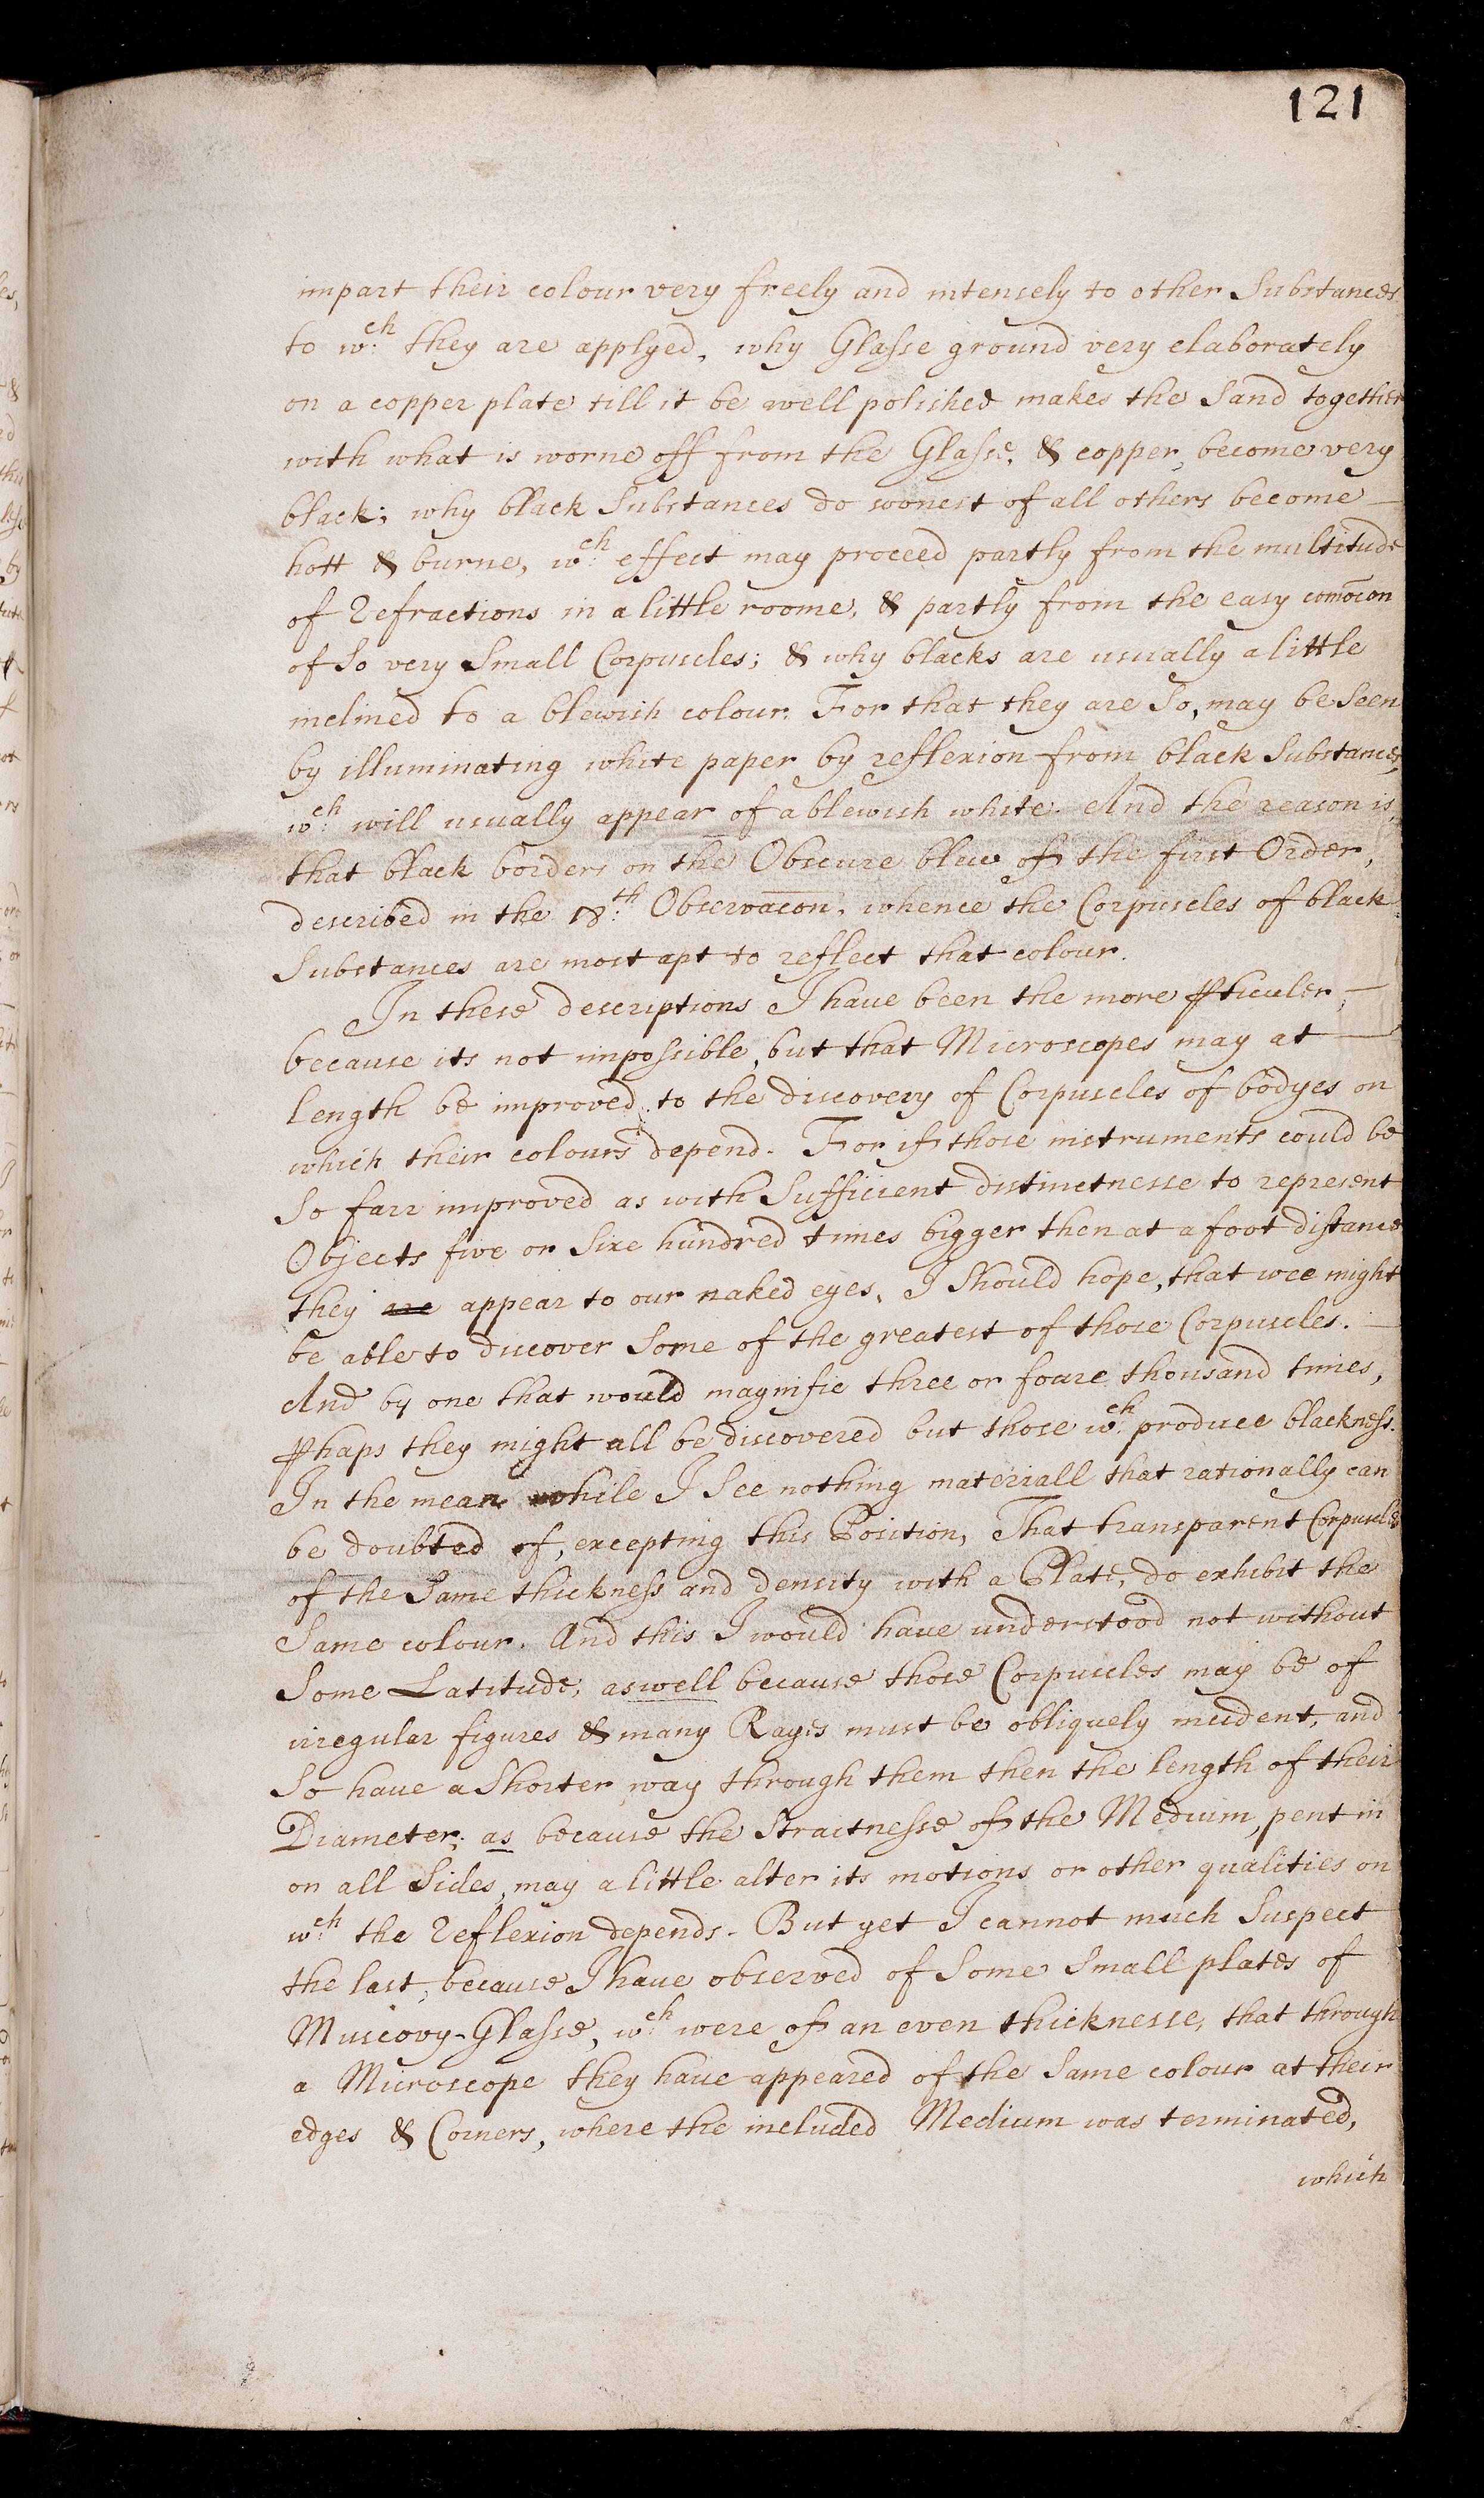 121
impart their colour very freely and intensely to other Substances
to wch they are applyed, why Glasse ground very elaborately
on a copper plate till it be well polished makes the Sand together
with what is worne off from the Glasse, & copper, become very
black; why black Substances do soonest of all others become
hott & burne, wch effect may proceed partly from the multitude
of Refractions in a little roome, & partly from the easy comōcon
of So very Small Corpuscles; & why blacks are usually a little
inclined to a blewish colour. For that they are So, may be Seen
by illuminating white paper by reflexion from black Substances,
wch will usually appear of a blewish white. And the reason is,
that black borders on the Obscure blew of the first Order,
described in the 18th Observacon, whence the Corpuscles of black
Substances are most apt to reflect that colour.
In these descriptions I have been the more ꝑticuler,
because its not impossible, but that Microscopes may at
length be improved to the discovery of Corpuscles of bodyes on
which their colours depend. For if those instruments could be
So farr improved as with Sufficient distinctnesse to represent
Objects five or Sixe hundred times bigger then at a foot distance
they are appear to our naked eyes, I Should hope, that wee might
be able to discover Some of the greatest of those Corpuscles.
And by one that would magnifie three or foure thousand times,
ꝑhaps they might all be discovered but those wch produce blackness.
In the mean while I See nothing materiall that rationally can
be doubted of, excepting this Position, That transparent Corpuscles
of the Same thickness and density with a Plate, do exhibit the
Same colour. And this I would have understood not without
Some Latitude, aswell because those Corpuscles may be of
irregular figures & many Rayes must be obliquely incident, and
So have a Shorter way through them then the length of their
Diameter; as because the Straitnesse of the Medium, pent in
on all Sides, may a little alter its motions or other qualities on
wch the Reflexion depends. But yet I cannot much Suspect
the last, because I have observed of Some Small plates of
Muscovy-Glasse, wch were of an even thicknesse, that through
a Microscope they have appeared of the Same colour at their
edges & Corners, where the included Medium was terminated,
which